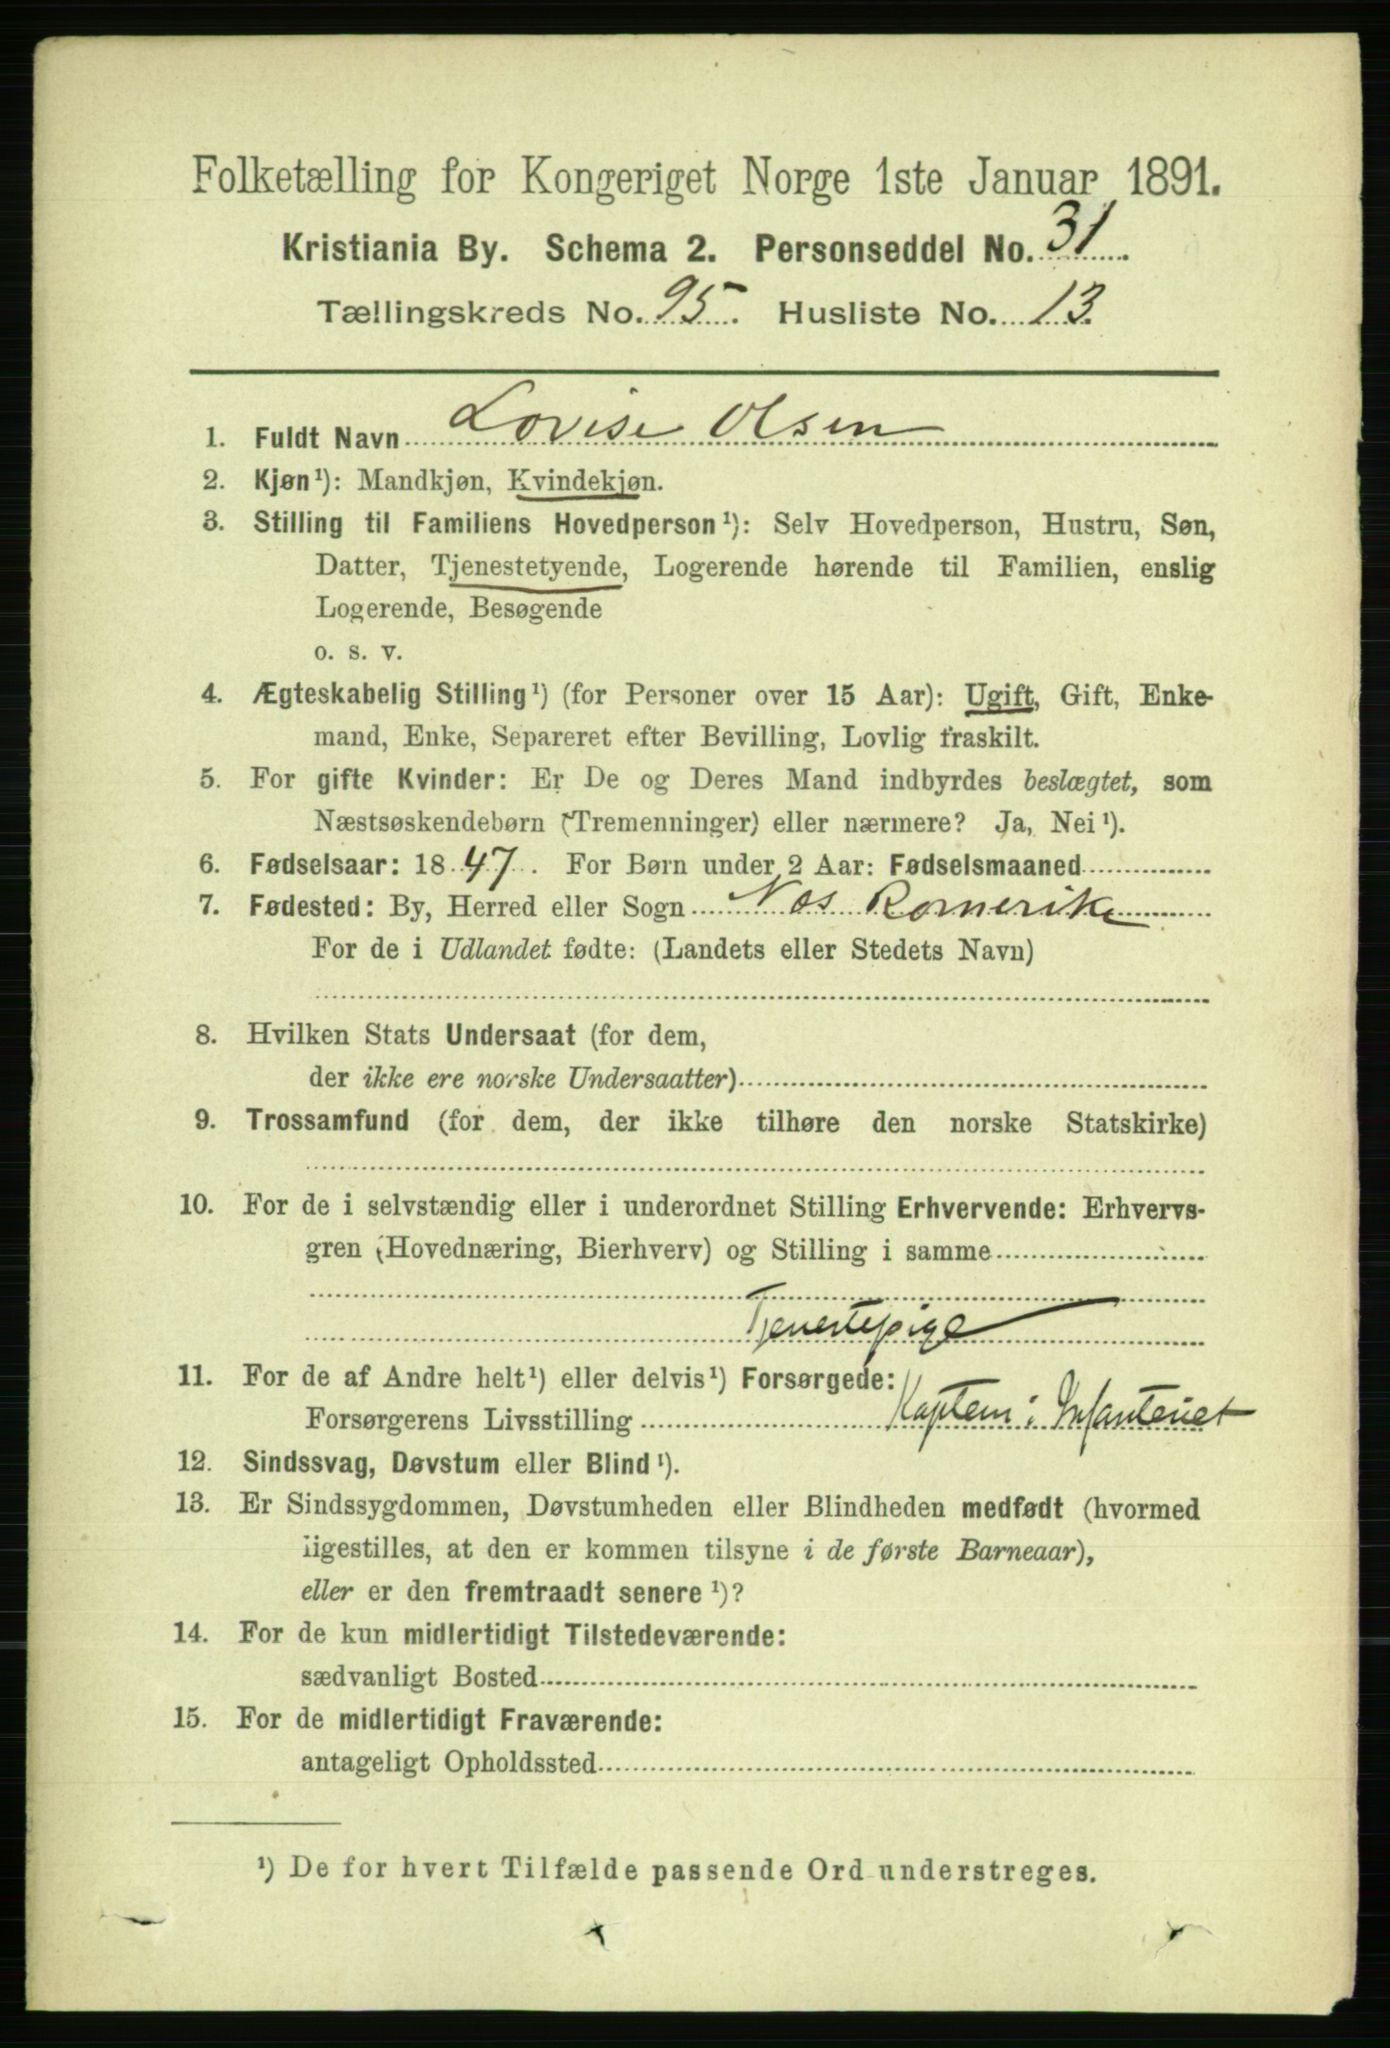 Folketælling for Kongeriget Norge 1ste Januar 1891.
Kristiania By. Schema 2. Personseddel No. 31
Tællingskreds No. 95. Husliste No. 13.
1. Fuldt Navn Lovise Olsen
2. Kjøn¹): Mandkjøn, Kvindekjøn.
3. Stilling til Familiens Hovedperson¹): Selv Hovedperson, Hustru, Søn,
Datter, Tjenestetyende, Logerende hørende til Familien, enslig
Logerende, Besøgende
o. s. v.
4. Ægteskabelig Stilling¹) (for Personer over 15 Aar): Ugift, Gift, Enke-
mand, Enke, Separeret efter Bevilling, Lovlig fraskilt.
5. For gifte Kvinder: Er De og Deres Mand indbyrdes beslægtet, som
Næstsøskendebørn (Tremenninger) eller nærmere? Ja, Nei¹).
6. Fødselsaar: 1847. For Børn under 2 Aar: Fødselsmaaned
7. Fødested: By, Herred eller Sogn Næs Romerike
For de i Udlandet fødte: (Landets eller Stedets Navn)
8. Hvilken Stats Undersaat (for dem,
der ikke ere norske Undersaatter)
9. Trossamfund (for dem, der ikke tilhøre den norske Statskirke)
10. For de i selvstændig eller i underordnet Stilling Erhvervende: Erhvervs-
gren (Hovednæring, Bierhverv) og Stilling i samme
Tjenestepige
11. For de af Andre helt¹) eller delvis¹) Forsørgede:
Forsørgerens Livsstilling Kaptein i Infanteriet
12. Sindssvag, Døvstum eller Blind¹).
13. Er Sindssygdommen, Døvstumheden eller Blindheden medfødt (hvormed
ligestilles, at den er kommen tilsyne i de første Barneaar),
eller er den fremtraadt senere¹)?
14. For de kun midlertidigt Tilstedeværende:
sædvanligt Bosted
15. For de midlertidigt Fraværende:
antageligt Opholdssted
¹) De for hvert Tilfælde passende Ord understreges.